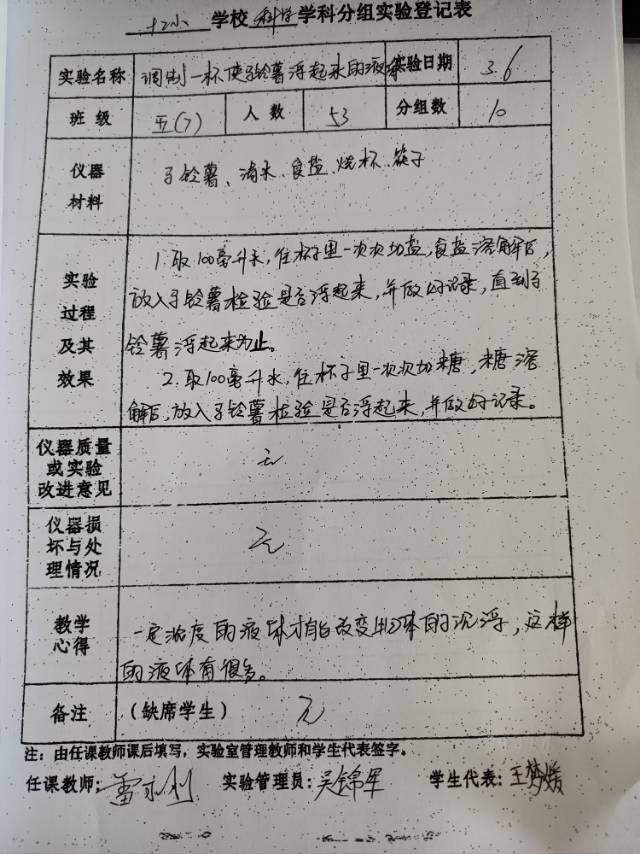 十二小 学校 科学 学科分组实验登记表
实验名称 调制一杯使马铃薯浮起来的液体 实验日期 3.6
班级 五(7) 人数 53 分组数 10
仪器
材料
马铃薯、清水、食盐、烧杯、筷子
实验
过程
及其
效果
1.取100毫升水,往杯子里一次次加盐,食盐溶解后,
放入马铃薯检验是否浮起来,并做好记录,直到马
铃薯浮起来为止。
2.取100毫升水,往杯子里一次次加糖,糖溶
解后,放入马铃薯检验是否浮起来,并做好记录。
仪器质量
或实验
改进意见
无
仪器损
坏与处
理情况
无
教学
心得
一定浓度的液体才能改变物体的沉浮,这样
的液体有很多。
备注 (缺席学生) 无
注:由任课教师课后填写,实验室管理教师和学生代表签字。
任课教师:雷永利 实验管理员:吴锦军 学生代表:王梦媛